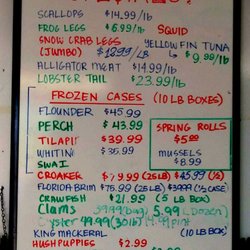 SCALLOPS $14.99/lb
FROG LEGS $6.99/lb SQUID
SNOW CRAB LEGS YELLOW FIN TUNA
(JUMBO) $12.99/LB $9.99/lb
ALLIGATOR MEAT $14.99/lb
LOBSTER TAIL $23.99/lb
FROZEN CASES (10 LB BOXES)
FLOUNDER $45.99
PERCH $43.99 SPRING ROLLS
TILAPIA $39.99 $5.99
WHITING $35.99 MUSSELS
SWAI $8.99
CROAKER $79.99 (25 LB) $45.99 (½)
FLORIDA BRIM $75.99 (25 LB) $39.99 (½ CASE)
CRAWFISH $21.99 (5 LB BOX)
Clams 39.99 (bag) 5.99 (Dozen)
Oyster 99.99 (30 lb) 14.99 pint
KING MACKERAL
HUSHPUPPIES $2.99 (10 LB BOX)